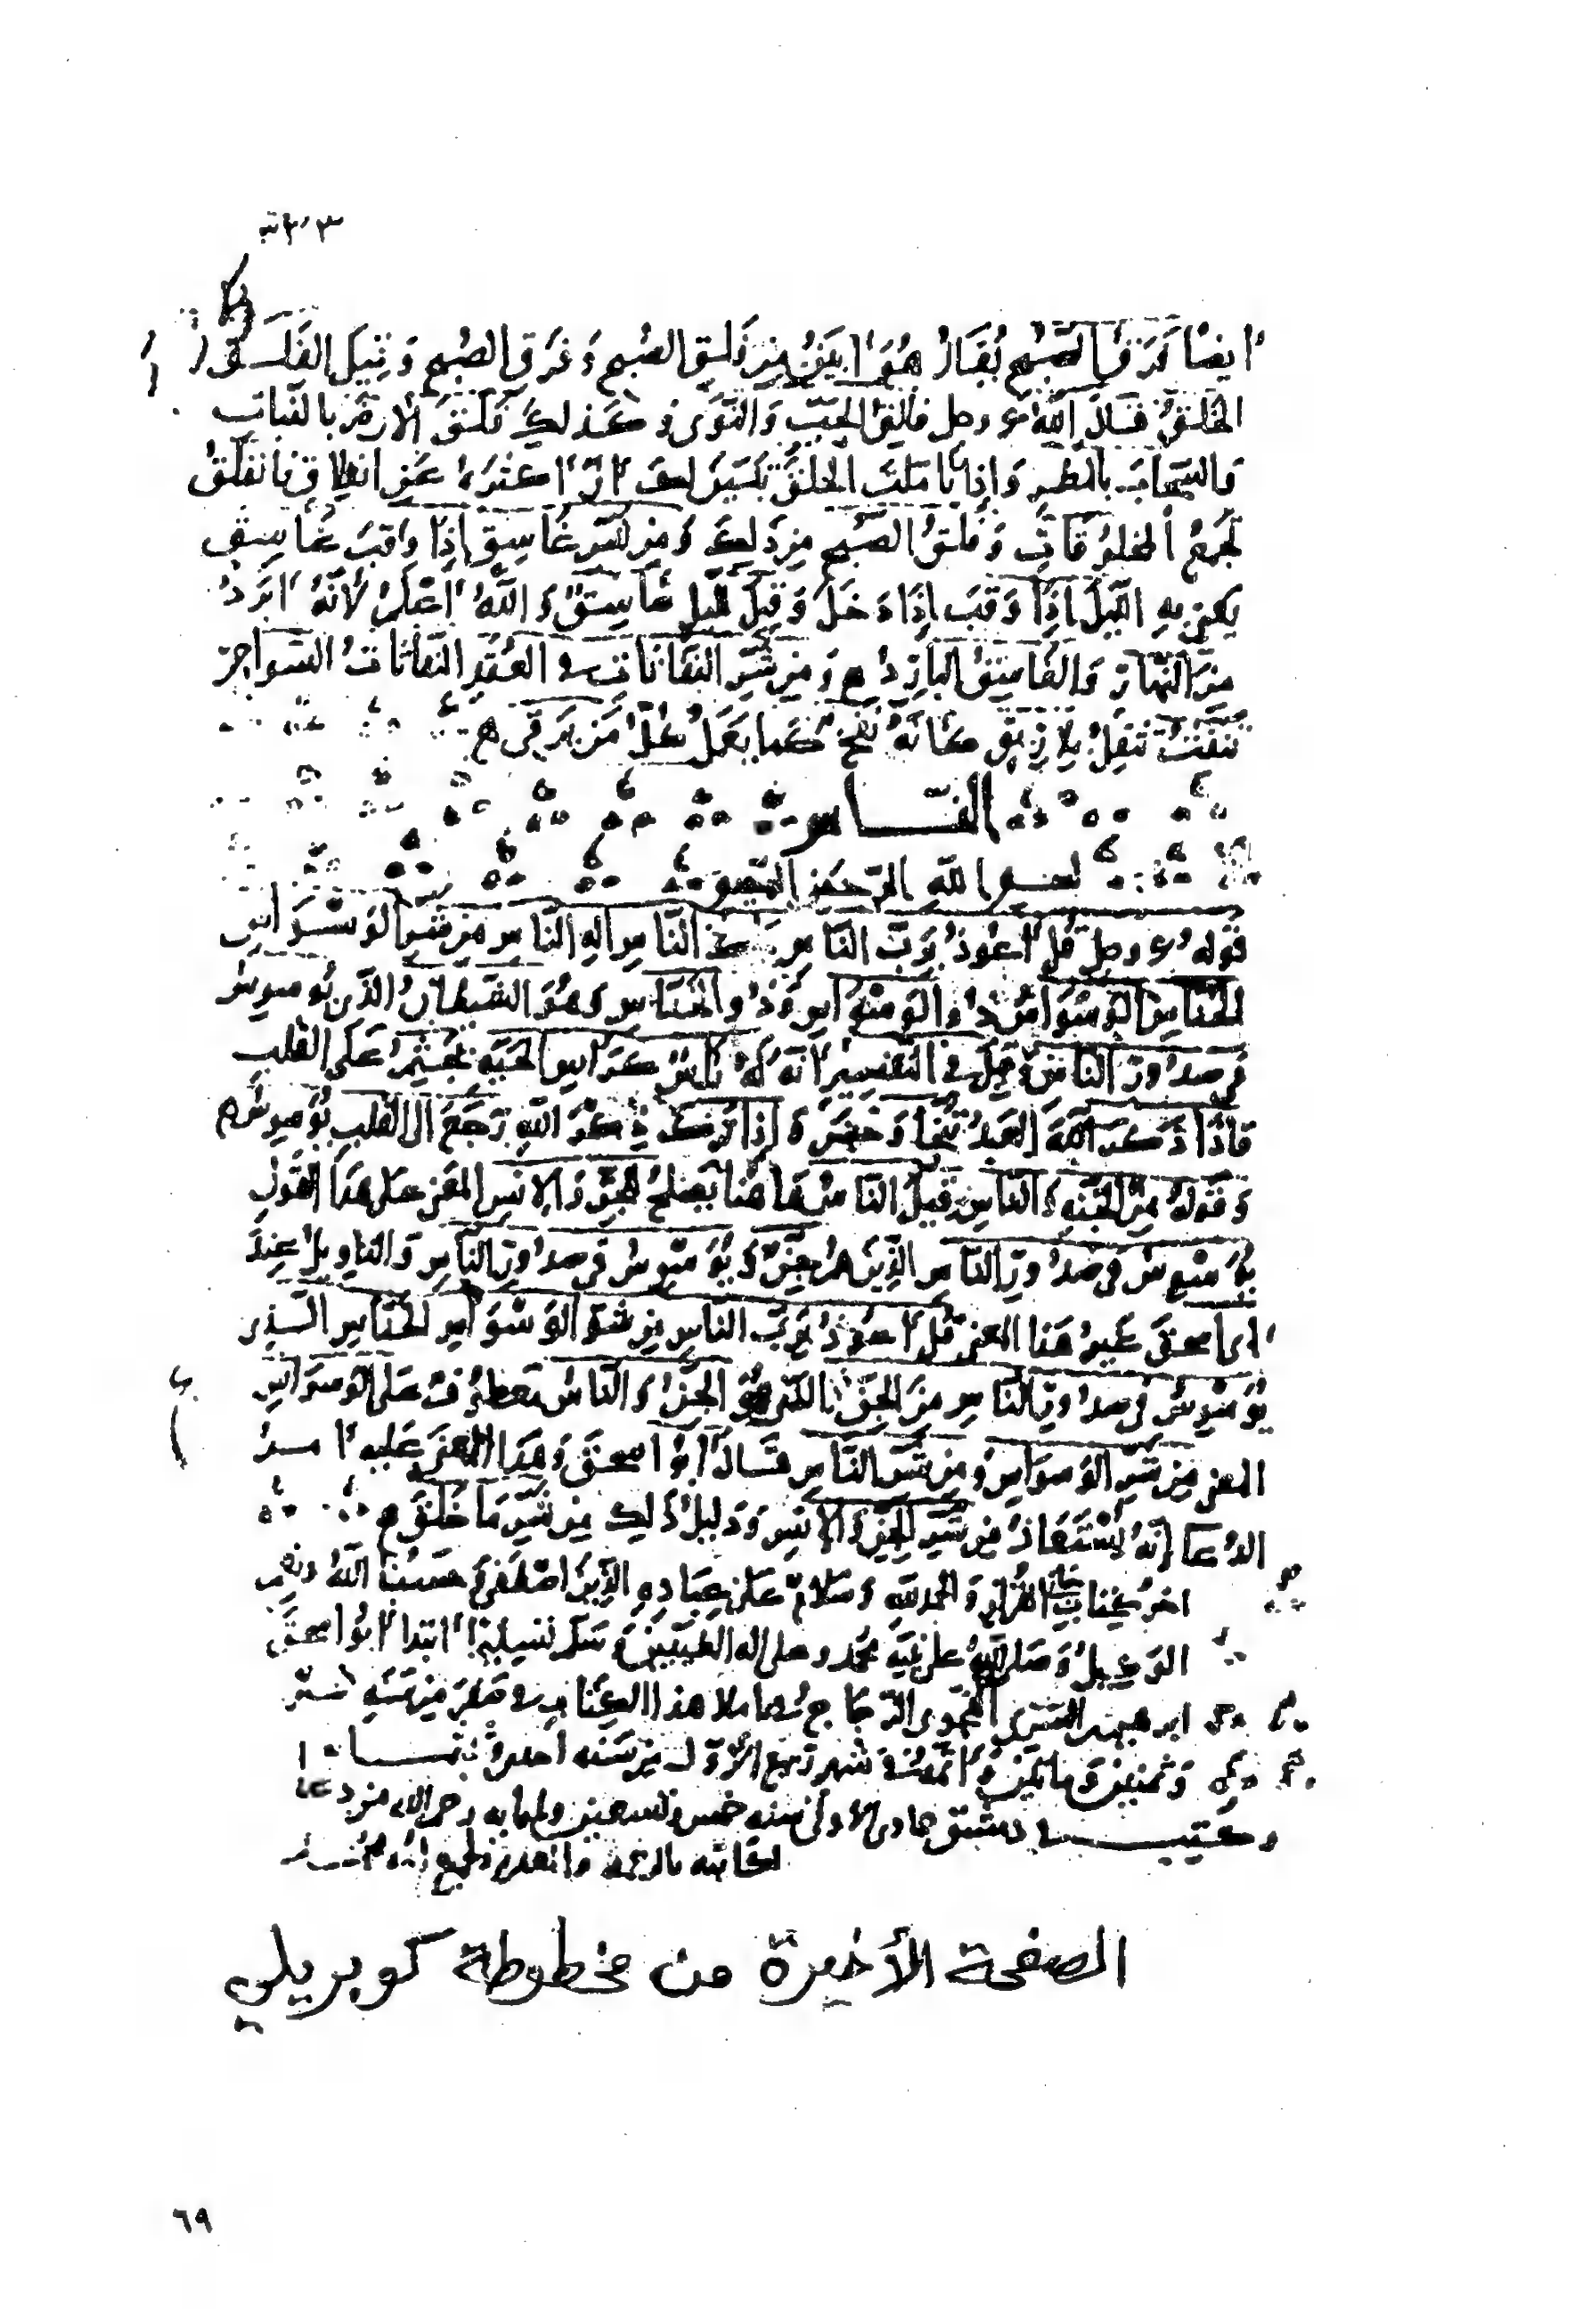 أيضًا فرق الصبح يقال هو أبين من فلق الصبح وفرق الصبح وقيل الفلق
الخلق قال الله عز وجل فالق الحب والنوى وكذلك فلق الأرض بالنبات
والسحاب بالمطر وإذا تأملت الخلق تبين لك أن أكثره عن انفلاق فالفلق
جميع المخلوقات وفلق الصبح من ذلك ومن شر غاسق إذا وقب غاسق
يعني به الليل إذا وقب إذا دخل وقيل لليل غاسق والله أعلم لأنه أبرد
من النهار والغاسق البارد ومن شر النفاثات في العقد النفاثات السواحر
تنفث تتفل بلا ريق كأنه نفخ كما يعمل كل من يرقي
الناس
بسم الله الرحمن الرحيم
قوله عز وجل قل أعوذ برب الناس ملك الناس إله الناس من شر الوسواس
الخناس الوسواس ذو الوسواس وذو الخناس وهو الشيطان الذي يوسوس
في صدور الناس وقيل في التفسير أنه له رأس كرأس الحية يجثم على القلب
فإذا ذكر الله العبد تنحا وخنس وإذا ترك ذكر الله رجع الى القلب يوسوس
وقوله من الجنة والناس وقيل الناس هاهنا يصلح للجن والإنس المعنى على هذا القول
يوسوس في صدور الناس الذين هم جن ويوسوس في صدور الناس والتاويل عند
أبي اسحق غير هذا المعنى قل أعوذ برب الناس من شر الوسواس الخناس الذي
يوسوس في صدور الناس من الجنة الذي هو الجن والناس معطوف على الوسواس
المعنى من شر الوسواس ومن شر الناس قال أبو اسحق وهذا المعنى عليه
الدعا أنه يستعاذ من شر الجن والإنس ودليل ذلك من شر ما خلق
اخر كتاب معاني القرآن والحمد لله وسلام على عباده الذين اصطفى حسبنا الله ونعم
الوكيل وصلى الله على نبيه محمد وعلى اله الطيبين وسلم تسليما ابتدأ أبو اسحق
ابرهيم السري النحوي الزجاج باملا هذا الكتاب في صفر من سنة خمس
وثمنين ومائتين وأتمه في شهر ربيع الأول من سنة احدى
وكتب في دمشق جمادى الأولى سنه خمس وتسعين وثلثمايه رحم الله من دعا
لكاتبه بالرحمة والمغفرة ولجميع
الصفحة الأخيرة من مخطوطة كوبريلي
٦٩